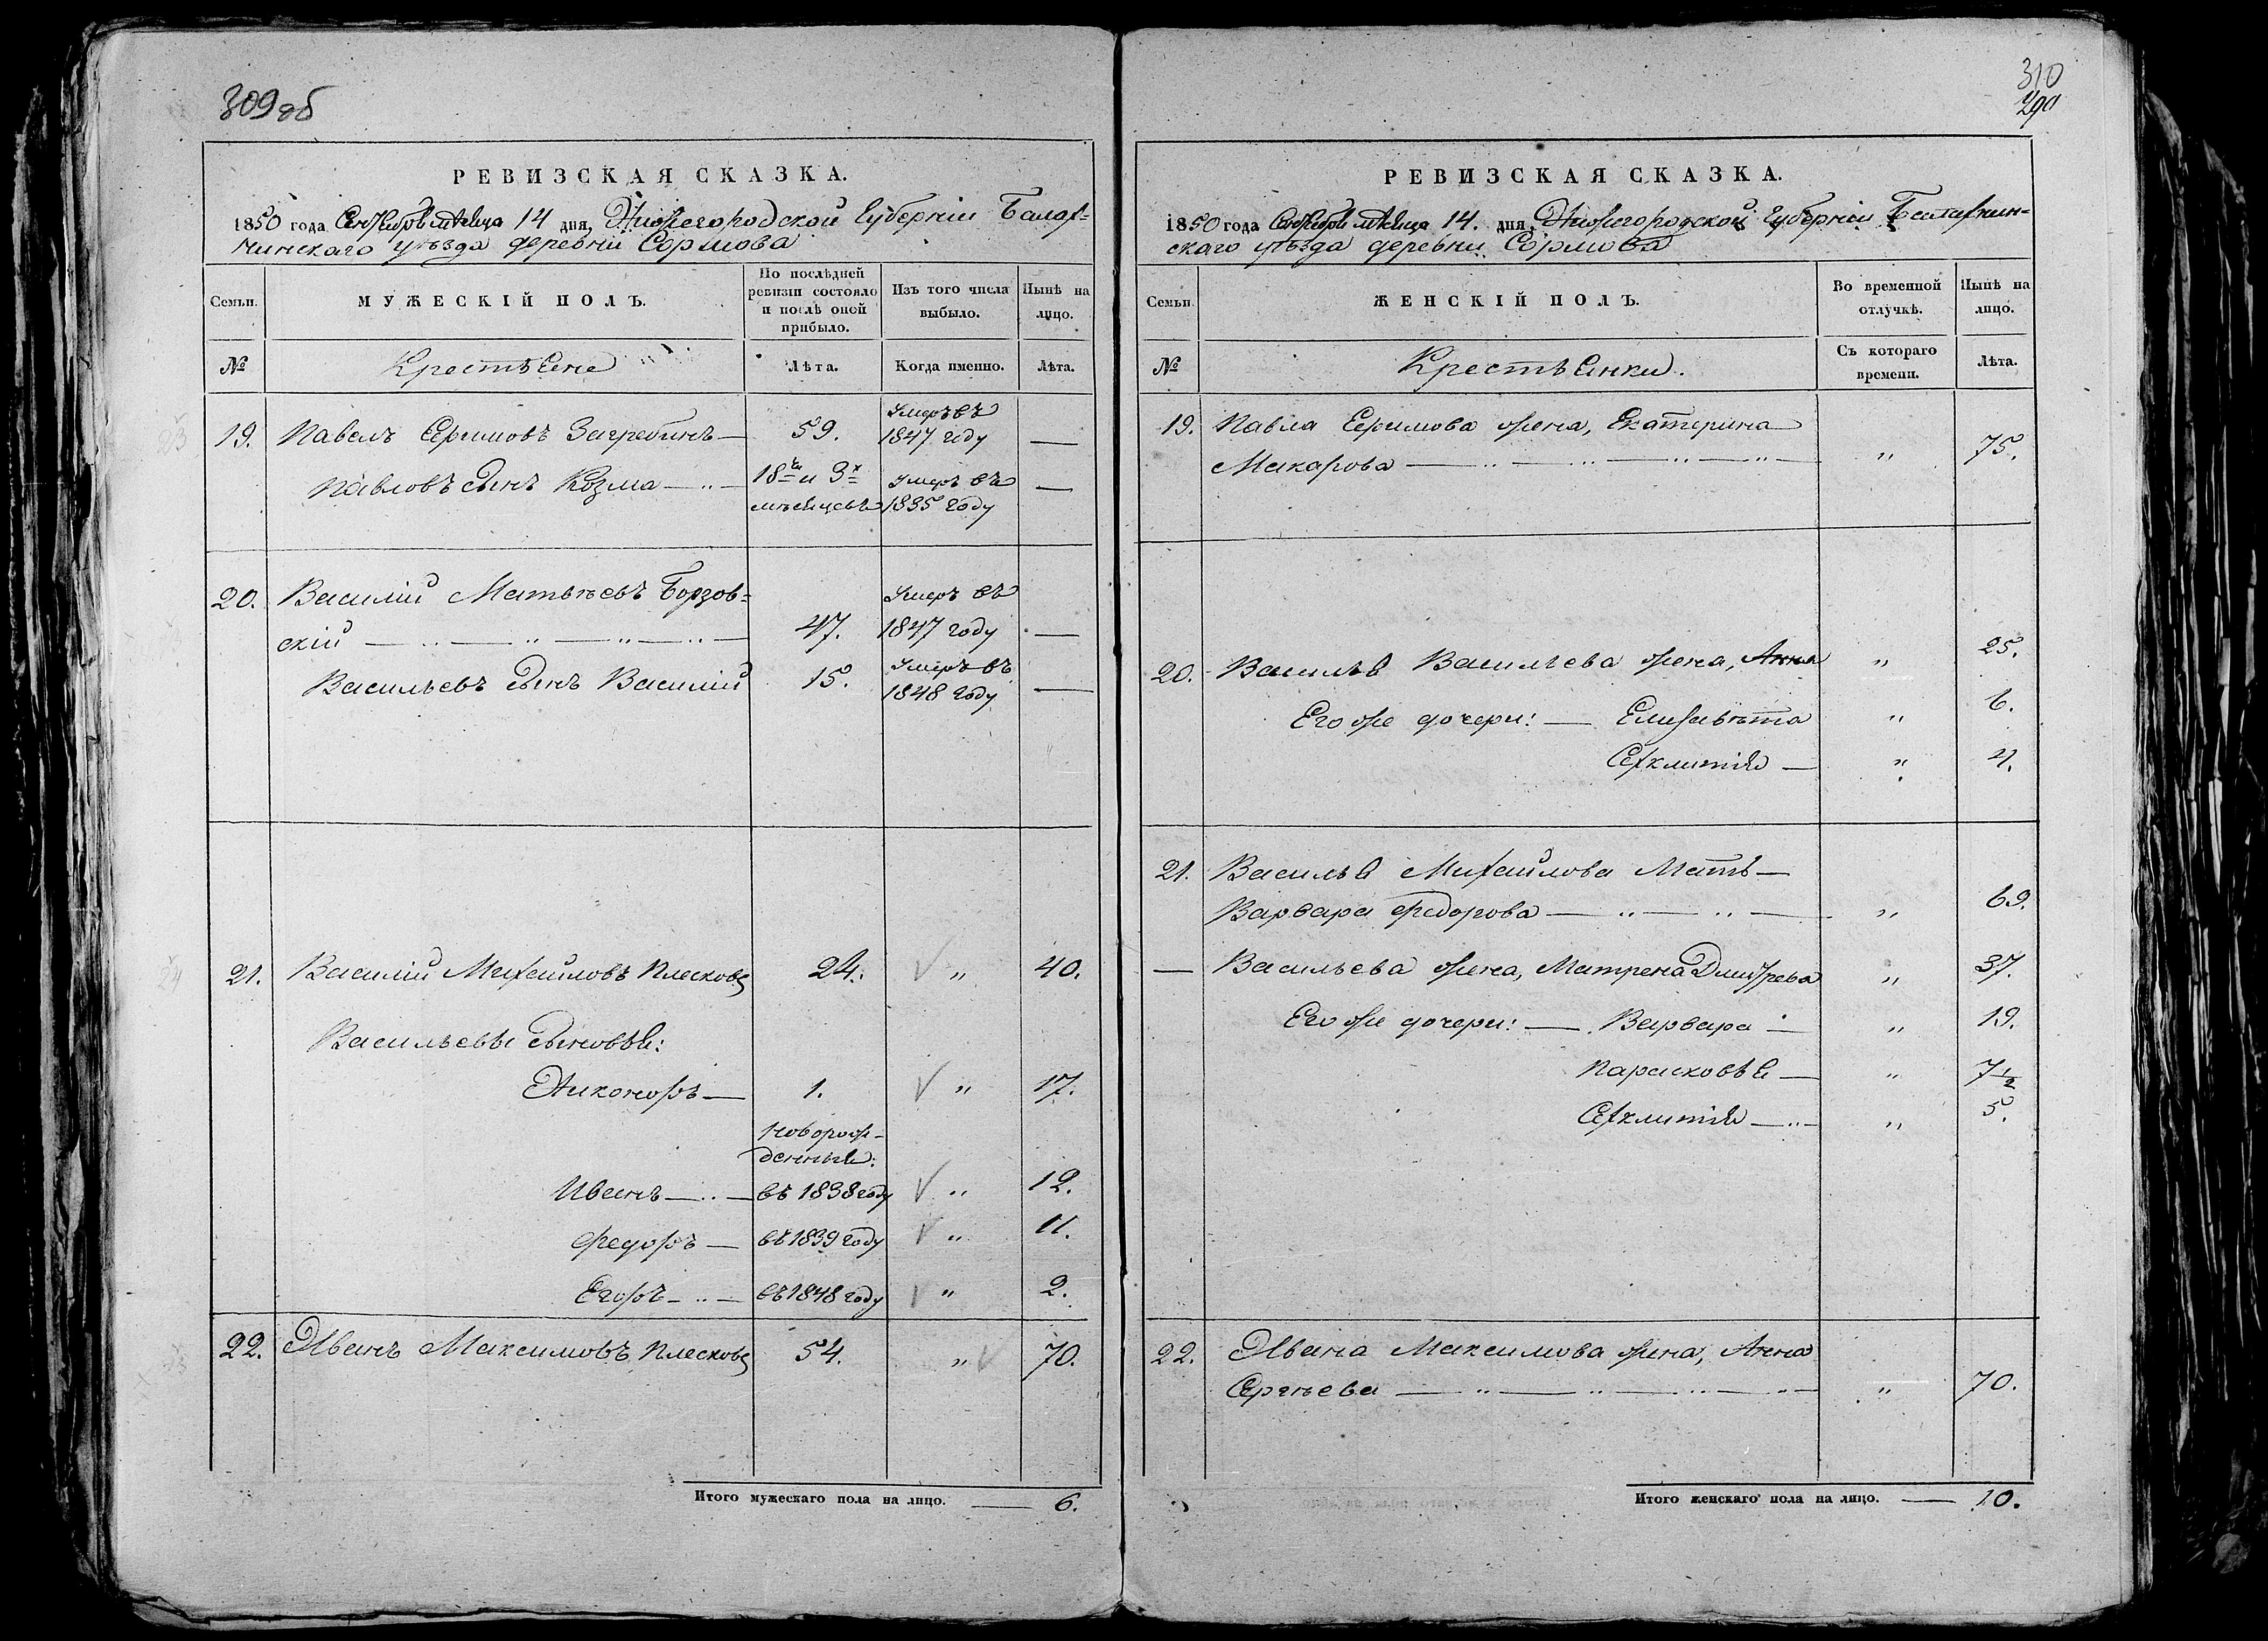 309 об
РЕВИЗСКАЯ СКАЗКА.
1850 года Сентября мѣсяца 14 дня, Нижегородской Губерніи Балах=
нинскаго уѣзда деревни Сормова
Семьи.
МУЖЕСКІЙ ПОЛЪ.
По послѣдней
ревизіи состояло
и послѣ оной
прибыло.
Изъ того числа
выбыло.
Нынѣ на
лицо.
№
Крестьяне
Лѣта.
Когда именно.
Лѣта.
19. Павелъ Ефимовъ Загребинъ — 59. Умеръ въ
1847 году —
Павловъ сынъ Козма — 18ти и 3х
мѣсяцевъ
Умеръ въ
1835 году —
20. Василій Матвѣевъ Борзов=
скій — 47. Умеръ въ
1847 году —
Васильевъ сынъ Василій 15. Умеръ въ
1848 году —
21. Василій Михайловъ Плесковъ 24. „ 40.
Васильевы сыновья:
Никоноръ — 1. „ 17.
Новорож-
денные:
Иванъ — въ 1838 году „ 12.
Федоръ — въ 1839 году „ 11.
Егоръ — въ 1848 году „ 2.
22. Иванъ Максимовъ Плесковъ 54. „ 70.
Итого мужескаго пола на лицо. — 6.
310
290
РЕВИЗСКАЯ СКАЗКА.
1850 года Сентября мѣсяца 14. дня Нижегородской Губерніи Балахнин=
скаго уѣзда деревни Сормова
Семьи
ЖЕНСКІЙ ПОЛЪ.
Во временной
отлучкѣ.
Нынѣ на
лицо.
№
Крестьянки.
Съ котораго
времени.
Лѣта.
19. Павла Ефимова жена, Екатерина
Макарова — „ 75.
20. Василья Васильева жена, Анна „ 25.
Его же дочери: — Елизавѣта „ 6.
Фёклитія — „ 4.
21. Василья Михайлова Мать —
Варвара Федорова — „ 69.
— Васильева жена, Матрена Дмитрева „ 37.
Его же дочери: — Варвара — „ 19.
Парасковья — „ 7 1/2
— „ 5.
22. Ивана Максимова жена, Анна
Сергѣева — „ 70.
Итого женскаго пола на лицо. — 10.